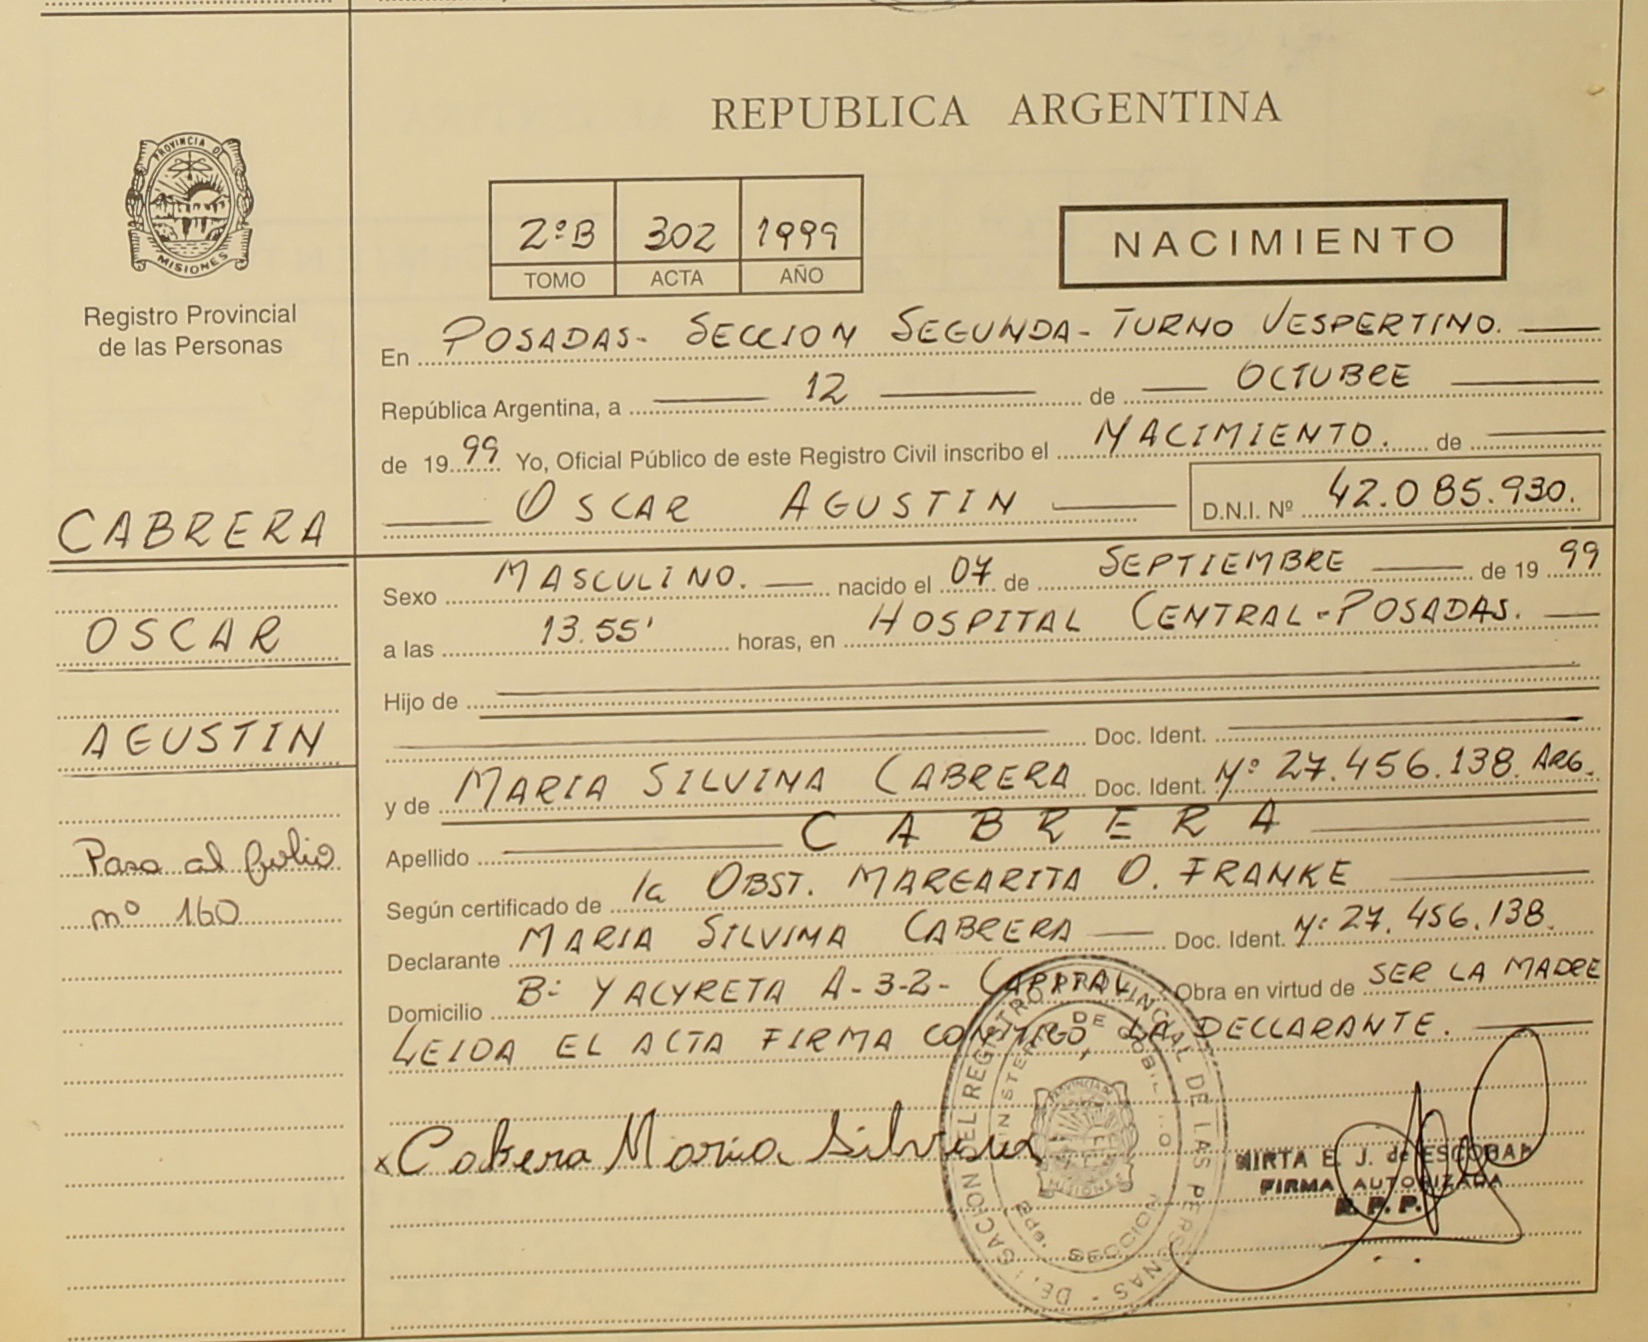 REPUBLICA ARGENTINA
PROVINCIA DE
MISIONES
Registro Provincial
de las Personas
2ºB 302 1999
TOMO ACTA AÑO
NACIMIENTO
En POSADAS- SECCION SEGUNDA- TURNO VESPERTINO.
República Argentina, a 12 de OCTUBRE
de 1999 Yo, Oficial Público de este Registro Civil inscribo el NACIMIENTO. de
OSCAR AGUSTIN D.N.I. Nº 42.085.930.
CABRERA
OSCAR
AGUSTIN
Pasa al folio
nº 160
Sexo MASCULINO. nacido el 07 de SEPTIEMBRE de 1999
a las 13.55' horas, en HOSPITAL CENTRAL-POSADAS.
Hijo de
Doc. Ident.
y de MARIA SILVINA CABRERA Doc. Ident. Nº 27.456.138. ARG.
Apellido CABRERA
Según certificado de la OBST. MARGARITA O. FRANKE
Declarante MARIA SILVINA CABRERA Doc. Ident. Nº 27.456.138.
Domicilio Bº YACYRETA A-3-2- CAPITAL Obra en virtud de SER LA MADRE
LEIDA EL ACTA FIRMA CONMIGO, LA DECLARANTE.
x Cabrera Maria Silvina
DEL REGISTRO PROVINCIAL DE LAS PERSONAS
MISIONES
SECCION
MIRTA E. J. de ESCOBAR
FIRMA AUTORIZADA
R. P. P.